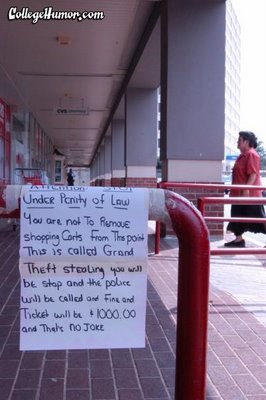 CollegeHumor.com
CVS
Under Panity of Law
You are not To Remove
shopping Carts From This point
This is called Grand
Theft stealing you will
be stop and the police
will be called and Fine and
Ticket will be $1000.00
and Thats no JOKE